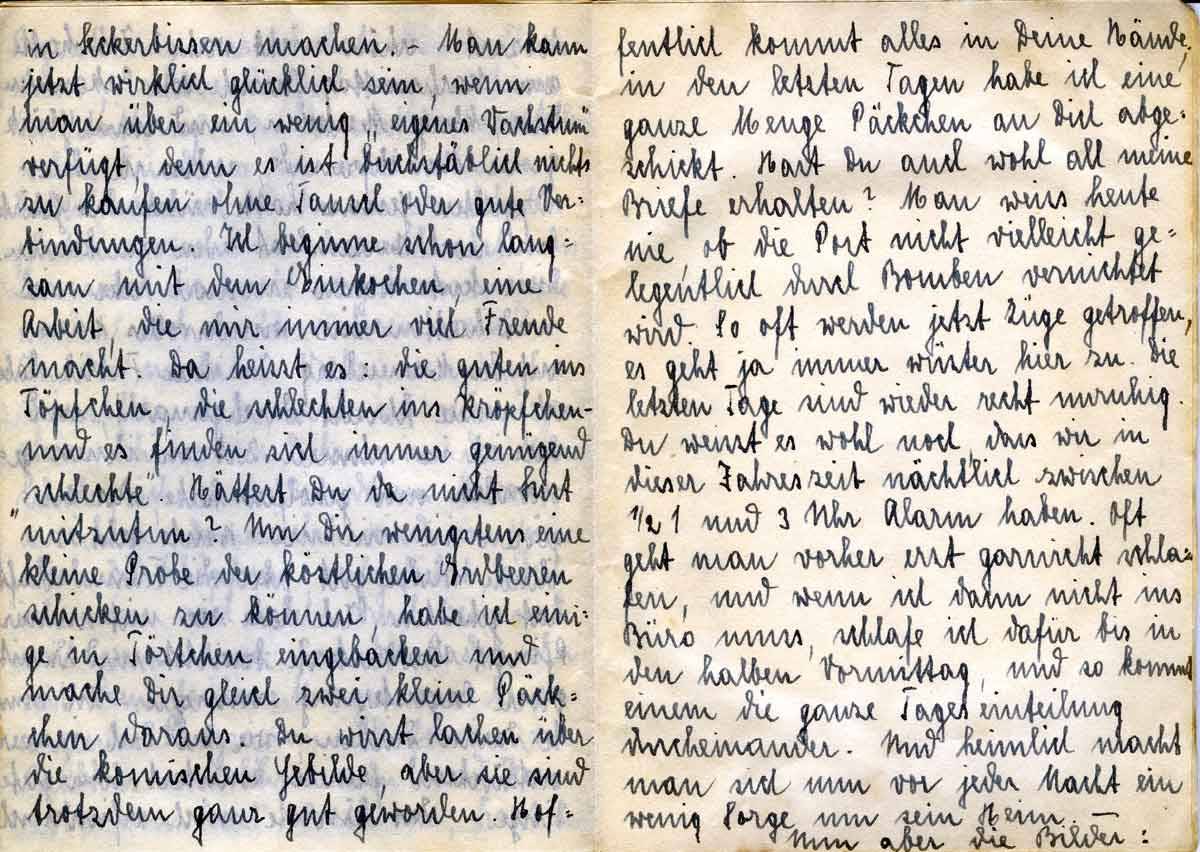 in Leckerbissen machen. – Man kann
jetzt wirklich glücklich sein, wenn
man über ein wenig „eigenes Wachstum"
verfügt, denn es ist buchstäblich nichts
zu kaufen ohne Tausch oder gute Ver=
bindungen. Ich beginne schon lang=
sam mit dem Einkochen, eine
Arbeit, die mir immer viel Freude
macht. Da heisst es: die guten ins
Töpfchen, die schlechten ins Kröpfchen –
und es finden sich immer genügend
„schlechte". Hättest Du da nicht Lust
mitzutun? Um Dir wenigstens eine
kleine Probe der köstlichen Erdbeeren
schicken zu können, habe ich eini=
ge in Törtchen eingebacken und
mache Dir gleich zwei kleine Päck=
chen daraus. Du wirst lachen über
die komischen Gebilde, aber sie sind
trotzdem ganz gut geworden. Hof=
fentlich kommt alles in Deine Hände,
in den letzten Tagen habe ich eine
ganze Menge Päckchen an Dich abge=
schickt. Hast Du auch wohl all meine
Briefe erhalten? Man weiss heute
nie, ob die Post nicht vielleicht ge=
legentlich durch Bomben vernichtet
wird. So oft werden jetzt Züge getroffen,
es geht ja immer wüster hier zu. Die
letzten Tage sind wieder recht unruhig.
Du weisst es wohl noch, dass wir in
dieser Jahreszeit nächtlich zwischen
1/2 1 und 3 Uhr Alarm haben. Oft
geht man vorher erst garnicht schla=
fen, und wenn ich dann nicht ins
Büro muss, schlafe ich dafür bis in
den halben Vormittag, und so kommt
einem die ganze Tageseinteilung
durcheinander. Und heimlich macht
man sich nun vor jeder Nacht ein
wenig Sorge um sein Heim. –
Nun aber die Bilder: